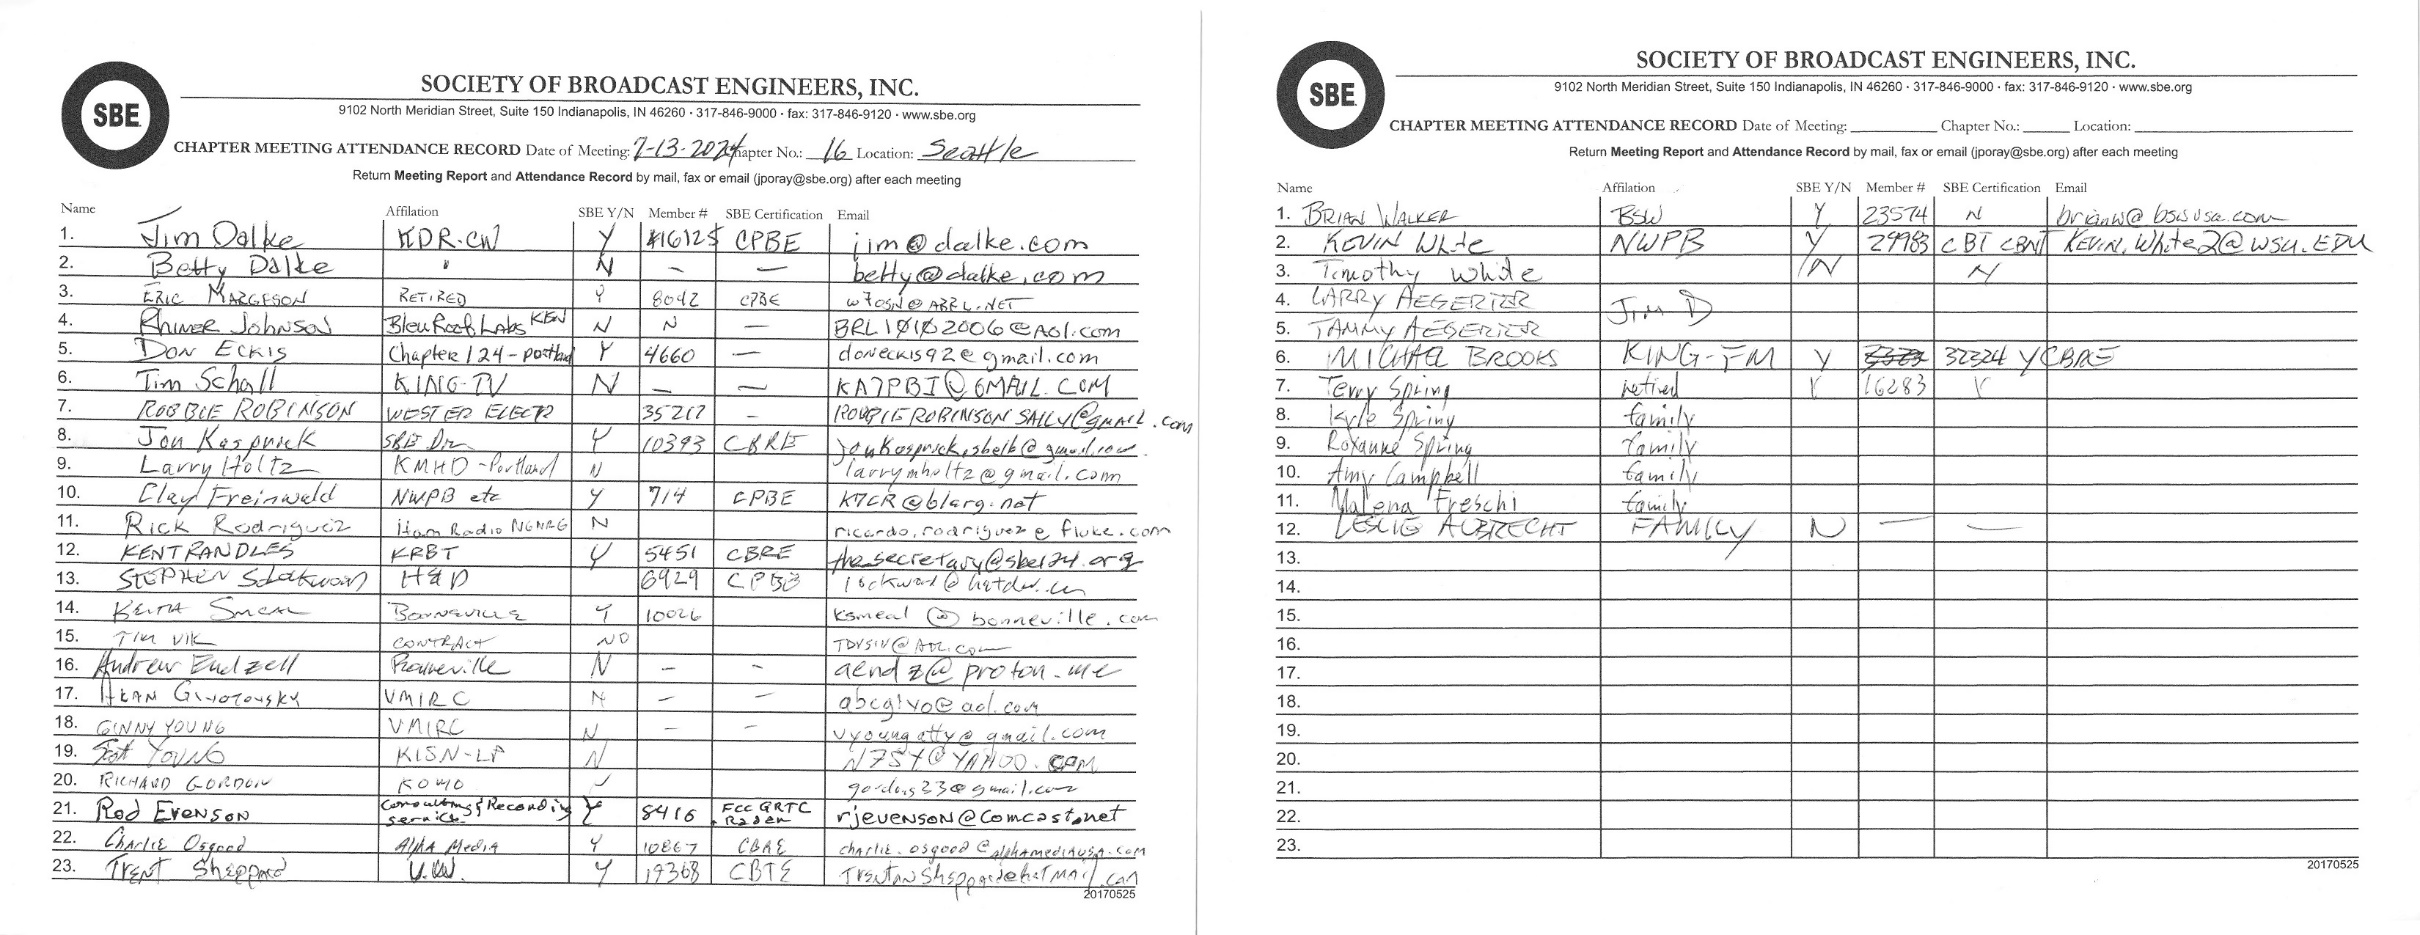 SBE
SOCIETY OF BROADCAST ENGINEERS, INC.
9102 North Meridian Street, Suite 150 Indianapolis, IN 46260 · 317-846-9000 · fax: 317-846-9120 · www.sbe.org
CHAPTER MEETING ATTENDANCE RECORD Date of Meeting: 7-13-2024 Chapter No.: 16 Location: Seattle
Return Meeting Report and Attendance Record by mail, fax or email (jporay@sbe.org) after each meeting
Name Affilation SBE Y/N Member # SBE Certification Email
1. Jim Dalke KDR-CW Y #16125 CPBE jim@dalke.com
2. Betty Dalke " N – — betty@dalke.com
3. ERIC MARGESON RETIRED Y 8042 CPBE
4. Rhiner Johnson BleuRoof Labs N N — BRL10102006@AOL.com
5. DON ECKIS Chapter 124 - portland Y 4660 — doneckis92@gmail.com
6. Tim Schall KING-TV N — — KA7PBI@GMAIL.COM
7. ROBBIE ROBINSON 35217 –
8. Jon Kasprick Y 10393 CBRE
9. Larry Holtz KMHD - Portland N larrymholtz@gmail.com
10. Clay Freinwald NWPB etc Y 714 CPBE K7CR@blarg.net
11. Rick Rodriguez Ham Radio N ricardo.rodriguez@fluke.com
12. KENT RANDLES KRBT Y 5451 CBRE the_secretary@sbe124.org
13. STEPHEN 6929
14. KEITH SMEAL BONNEVILLE Y 10026 ksmeal@bonneville.com
15. TIM VIK CONTRACT NO
16. Andrew Endzell N – – aendz@proton.me
17. ALAN GIVOTOVSKY VMIRC N – – abcgivo@aol.com
18. GINNY YOUNG VMIRC N – – vyoungatty@gmail.com
19. Scott YOUNG KISN-LP N N7SY@YAHOO.COM
20. RICHARD GORDON KOMO
21. Rod Evenson Consulting & Recording Services Y 8416 rjevenson@comcast.net
22. Charlie Osgood Alpha Media Y 10867 charlie.osgood@alphamediausa.com
23. Trent Sheppard U.W. Y 19368 CBTE
20170525
SBE
SOCIETY OF BROADCAST ENGINEERS, INC.
9102 North Meridian Street, Suite 150 Indianapolis, IN 46260 · 317-846-9000 · fax: 317-846-9120 · www.sbe.org
CHAPTER MEETING ATTENDANCE RECORD Date of Meeting: Chapter No.: Location:
Return Meeting Report and Attendance Record by mail, fax or email (jporay@sbe.org) after each meeting
Name Affilation SBE Y/N Member # SBE Certification Email
1. BRIAN WALKER BSW Y 23574 N brianw@bswusa.com
2. KEVIN White NWPB Y 29983 CBT CBNT KEVIN.White2@WSU.EDU
3. Timothy White N N
4. LARRY AEGERTER Jim D
5. TAMMY AEGERTER
6. MICHAEL BROOKS KING-FM Y 32324 Y CBRE
7. Terry Spring retired Y 16283 Y
8. Kyle Spring family
9. Roxanne Spring family
10. Amy Campbell family
11. Malena Freschi family
12. LESLIE ALBRECHT FAMILY N — —
13.
14.
15.
16.
17.
18.
19.
20.
21.
22.
23.
20170525